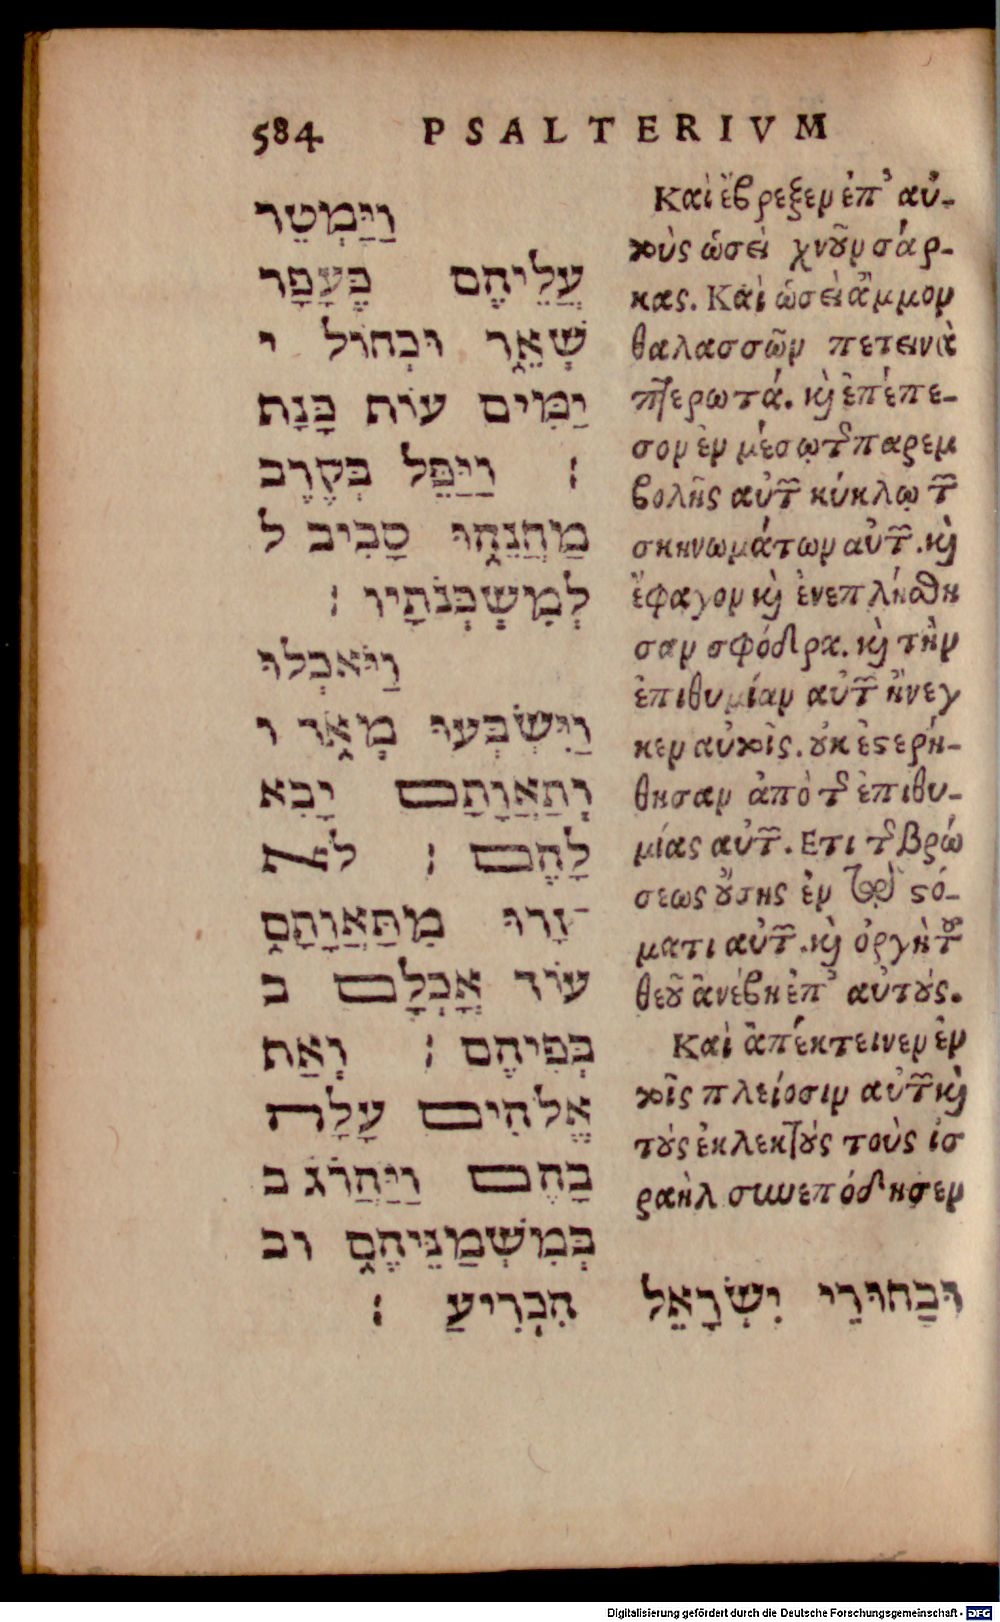 584 PSALTERIVM
וַיַּמְטֵר
עֲלֵיהֶם כֶּעָפָר
שְׁאֵר וּכְחוֹל י
יַמִּים עוֹת כָּנָת
׃ וַיַּפֵּל בְּקֶרֶב
מַחֲנֵהוּ סָבִיב ל
לְמִשְׁכְּנֹתָיו ׃
וַיֹּאכְלוּ
וַיִּשְׂבְּעוּ מְאֹר ו
וְתַאֲוָתָם יָבִא
לָהֶם ׃ לא
זָרוּ מִתַּאֲוָתָם
עוֹד אָכְלָם ב
בְּפִיהֶם ׃ וְאַת
אֱלֹהִים עָלָה
בָהֶם וַיַּהֲרֹג ב
בְּמִשְׁמַנֵּיהֶם וב
Καὶ ἔβρεξεν ἐπ' αὐ-
τοὺς ὡσεὶ χνοῦν σάρ-
κας. Καὶ ὡσεὶ ἄμμον
θαλασσῶν πετεινὰ
πτερωτά. κὶ ἐπέπε-
σον ἐν μέσῳ τῆς παρεμ
βολῆς αὐτῶν κύκλῳ τῶν
σκηνωμάτων αὐτῶν. κὶ
ἔφαγον κὶ ἐνεπλήσθη
σαν σφόδρα. κὶ τὴν
ἐπιθυμίαν αὐτῶν ἤνεγ
κεν αὐτοῖς. οὐκ ἐστερή-
θησαν ἀπὸ τῆς ἐπιθυ-
μίας αὐτῶν. Ετι τῆς βρώ
σεως οὔσης ἐν τῷ στό-
ματι αὐτῶν. κὶ ὀργὴ τοῦ
θεοῦ ἀνέβη ἐπ' αὐτούς.
Καὶ ἀπέκτεινεν ἐν
τοῖς πλείοσιν αὐτῶν κὶ
τοὺς ἐκλεκτοὺς τοὺς ἰσ
ραὴλ συνεπόδησεν
וּבַחוּרֵי יִשְׂרָאֵל הִכְרִיעַ ׃
Digitalisierung gefördert durch die Deutsche Forschungsgemeinschaft - DFG